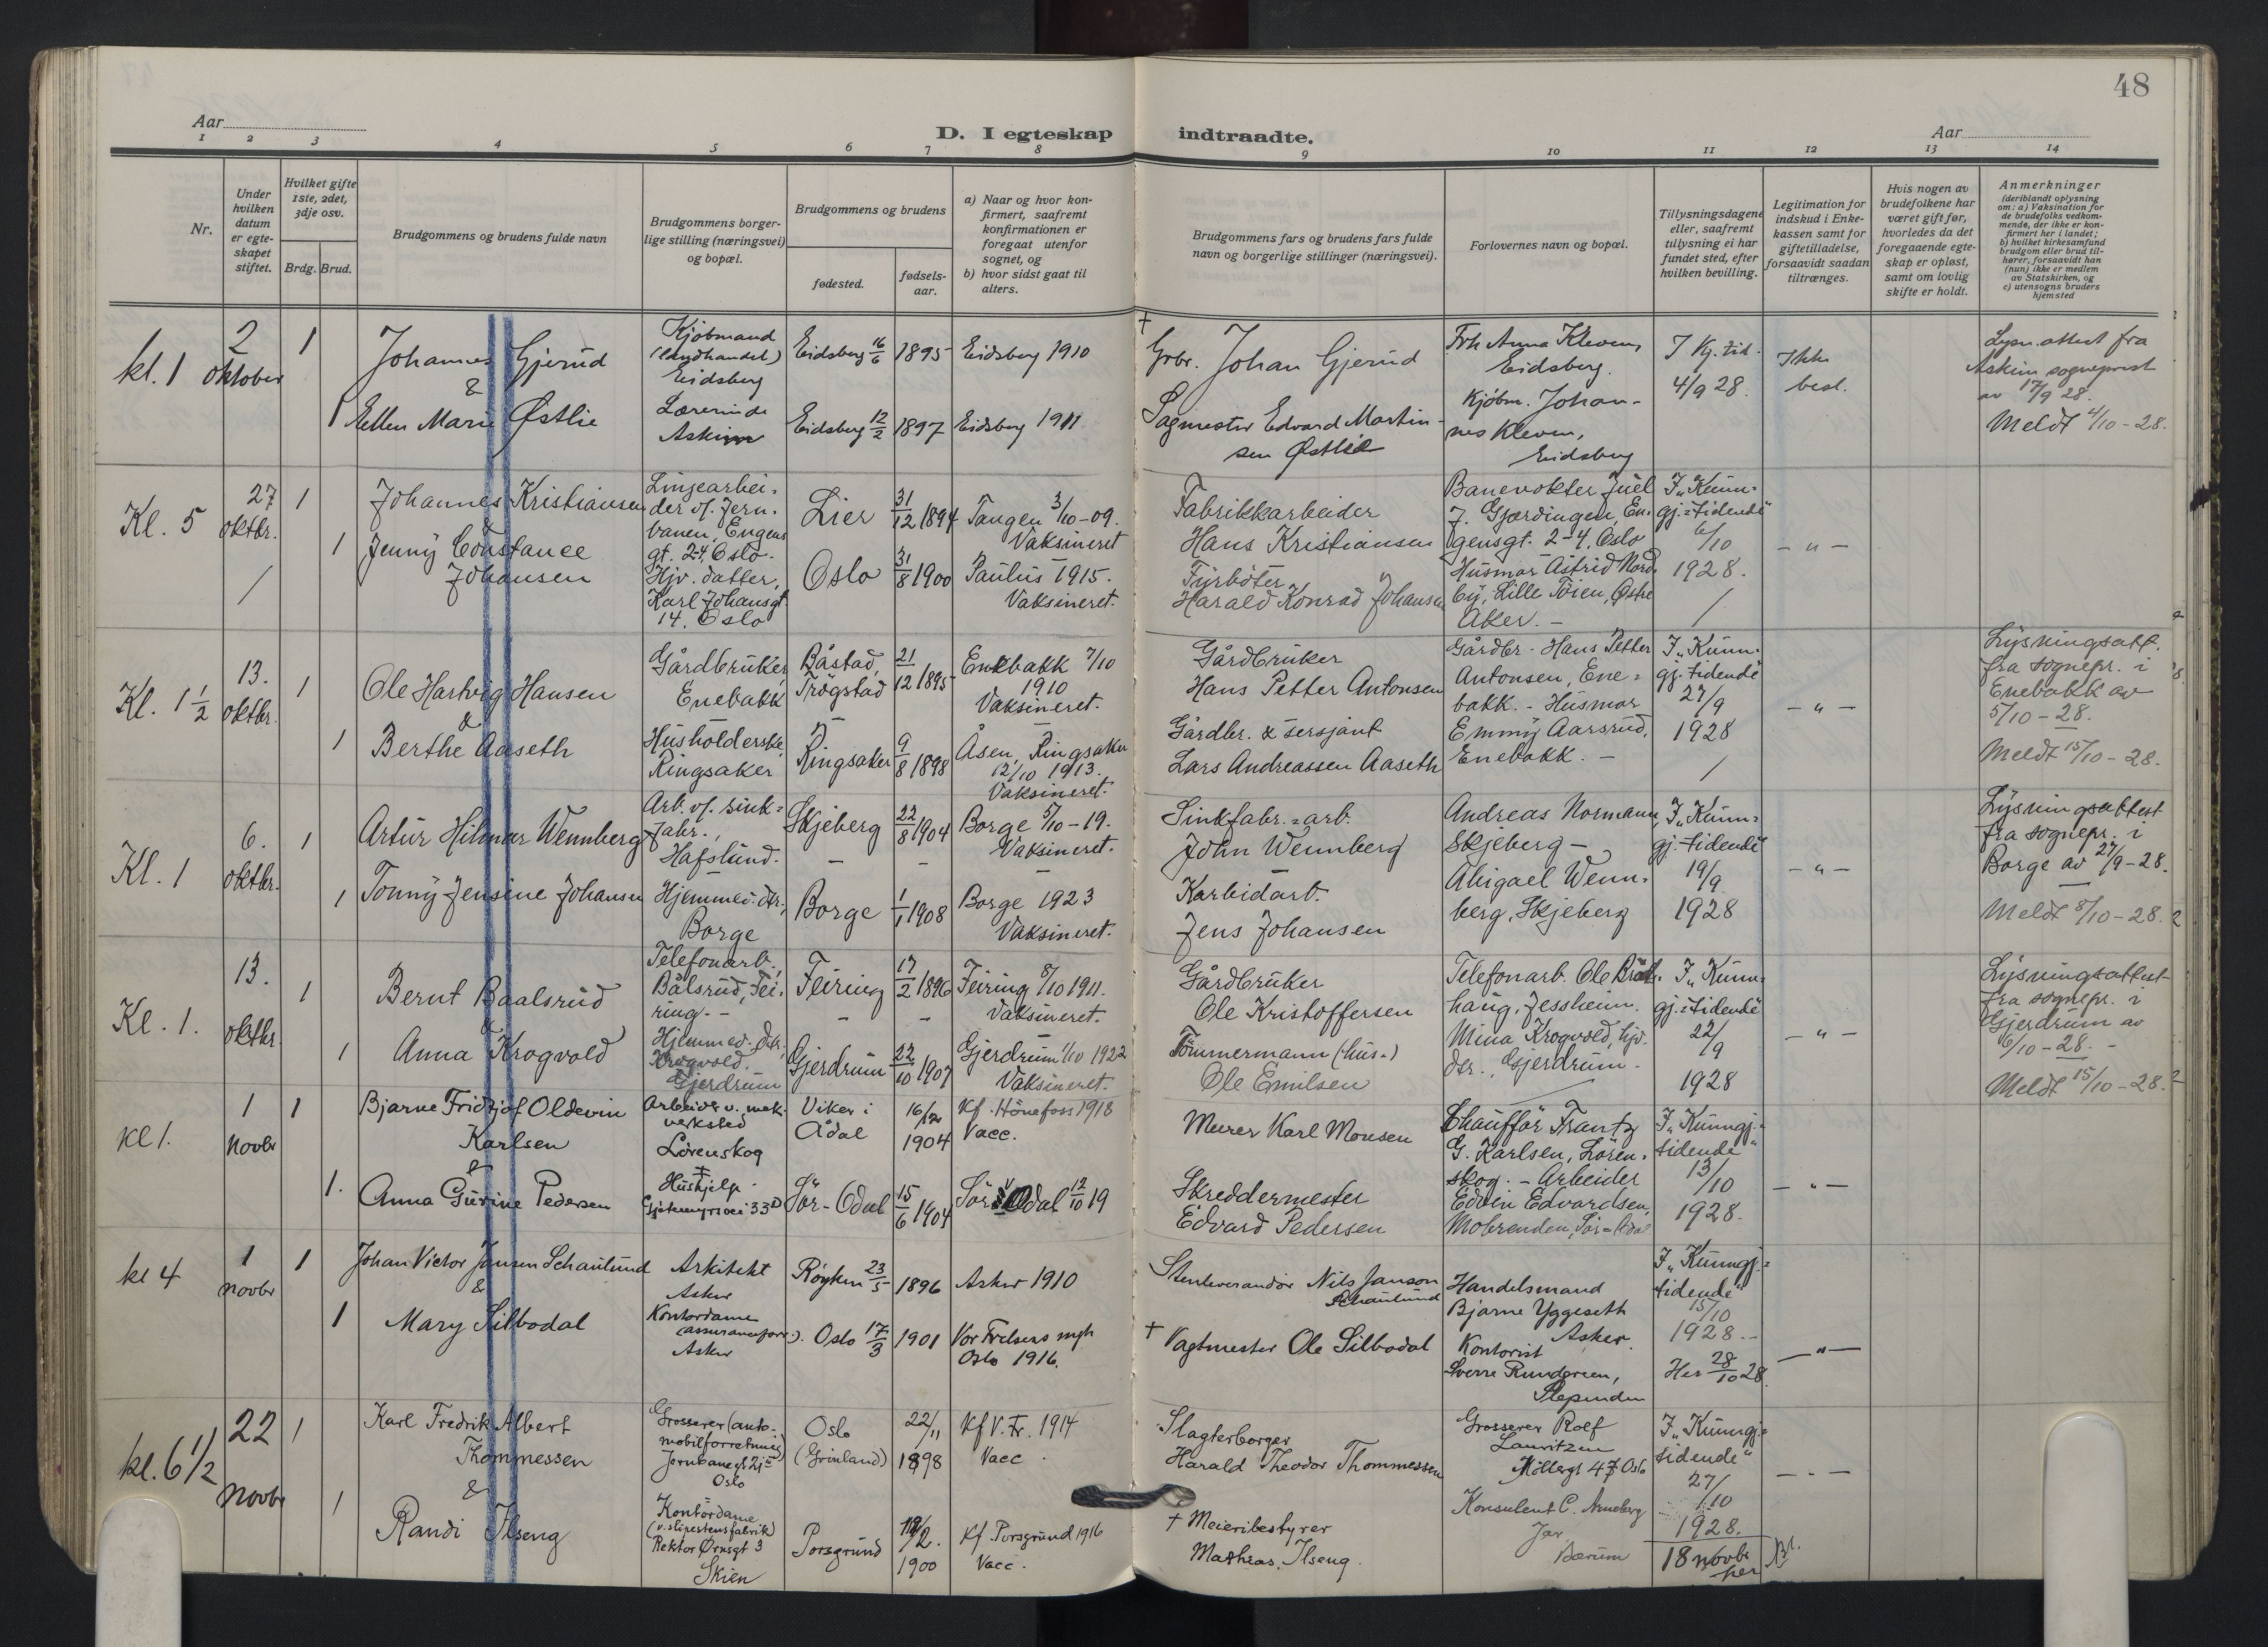 48
Aar
D. I egteskap indtraadte.
Aar
1 2 3 4 5 6 7 8 9 10 11 12 13 14
Nr.
Under hvilken datum er egteskapet stiftet.
Hvilket gifte 1ste, 2det, 3dje osv.
Brdg. Brud.
Brudgommens og brudens fulde navn
Brudgommens borgerlige stilling (næringsvei) og bopæl.
Brudgommens og brudens
fødested.
fødselsaar.
a) Naar og hvor konfirmert, saafremt konfirmationen er foregaat utenfor sognet, og
b) hvor sidst gaat til alters.
Brudgommens fars og brudens fars fulde navn og borgerlige stillinger (næringsvei).
Forlovernes navn og bopæl.
Tillysningsdagene eller, saafremt tillysning ei har fundet sted, efter hvilken bevilling.
Legitimation for indskud i Enkekassen samt for giftetilladelse, forsaavidt saadan tiltrænges.
Hvis nogen av brudefolkene har været gift før, hvorledes da det foregaaende egteskap er opløst, samt om lovlig skifte er holdt.
Anmerkninger
(deriblandt oplysning om: a) Vaksination for de brudefolks vedkommende, der ikke er konfirmert her i landet; b) hvilket kirkesamfund brudgom eller brud tilhører, forsaavidt han (hun) ikke er medlem av Statskirken, og c) utensogns bruders hjemsted
kl. 1
2 oktober
1
Johannes Gjerud
&
Kjøbmand
(landhandel)
Eidsberg
Eidsberg 16/6 1895
Eidsberg 1910
1
Ellen Marie Østlie
Lærerinde
Askim
Eidsberg 12/2 1897
Eidsberg 1911
†
Grbr. Johan Gjerud
Sagmester Edvard Martinsen Østlie
Frk Anna Kleven,
Eidsberg.
Kjøbm. Johannes Kleven,
Eidsberg
I Kg. tid.
4/9 28.
Ikke
best.
Lysn. attest fra
Askim sogneprest
av 17/9 28.
Meldt 4/10 - 28.
Kl. 5
27 oktbr.
1
Johannes Kristiansen
&
Linjearbei-
der v/ Jern-
banen, Engens
gt. 2-4, Oslo.
Lier 31/12 1894
Tangen 3/10-09.
Vaksineret
1
Jenny Constance
Johansen
Hjv. datter,
Karl Johansgt.
14. Oslo
Oslo 31/8 1900
Paulus 1915.
Vaksineret.
Fabrikkarbeider
Hans Kristiansen
Fyrbøter
Harald Konrad Johansen
Banevokter Juel
J. Gjærdingen, En-
gensgt. 2-4, Oslo
Husmor Astrid Nord-
by, Lille Tøien, Østre
Aker. -
I "Kunn-
gj.-tidende"
6/10
1928.
- " -
Kl. 1 1/2
13. oktbr.
1
Ole Hartvig Hansen
&
Gårdbruker,
Enebakk
Båstad,
Trøgstad
21/12 1895
Enebakk 7/10
1910
Vaksineret.
1
Berthe Aaseth
Husholderske,
Ringsaker
Ringsaker 9/8 1898
Åsen, Ringsaker
12/10 1913.
Vaksineret.
Gårdbruker
Hans Petter Antonsen
Gårdbr. & sersjant
Lars Andreassen Aaseth
Gårdbr. Hans Petter
Antonsen, Ene-
bakk. - Husmor
Emmy Aarsrud,
Enebakk. -
I "Kunn-
gj.-tidende"
27/9
1928
- " -
Lysningsatt.
fra sognepr. i
Enebakk av
5/10 - 28.
Meldt 15/10 - 28.
Kl. 1
6. oktbr.
1
Artur Hilmar Wennberg
Arb. v/ sink-
fabr.,
Hafslund.
Skjeberg 22/8 1904
Borge 5/10-19.
Vaksineret.
1
Tonny Jensine Johansen
Hjemmev. dtr.,
Borge
Borge 1/1 1908
Borge 1923
Vaksineret.
Sinkfabr.-arb.
John Wennberg
Karbidarb.
Jens Johansen
Andreas Normann,
Skjeberg -
Abigael Wenn-
berg, Skjeberg
I "Kunn-
gj.-tidende"
19/9
1928
- " -
Lysningsattest
fra sognepr. i
Borge av 27/9-28.
Meldt 8/10 - 28.
Kl. 1.
13. oktbr.
1
Bernt Baalsrud
&
Telefonarb.,
Bålsrud, Fei-
ring. -
Feiring 17/2 1896
Feiring 8/10 1911.
Vaksineret.
1
Anna Krogvold
Hjemmev. dtr.,
Krogvold,
Gjerdrum
Gjerdrum 22/10 1907
Gjerdrum 1/10 1922
Vaksineret.
Gårdbruker
Ole Kristoffersen
Tømmermann (hus-)
Ole Emilsen
Telefonarb. Ole Bråt-
haug, Jessheim.
Mina Krogvold, hjv.
dtr., Gjerdrum.
I "Kunn-
gj.-tidende"
22/9
1928
- " -
Lysningsattest
fra sognepr. i
Gjerdrum av
6/10 - 28. -
Meldt 15/10 - 28.
Kl 1.
1 Novbr
1
Bjarne Fridtjof Oldevin
Karlsen
&
Arbeider v. mek.
verksted
Lørenskog
Viker i
Ådal
16/12
1904
Kf. Hönefoss 1918
Vacc.
1.
Anna Gurine Pedersen
Hushjelp
Gjetemyrsvei 33 D
Sør-Odal
15/6 1904
Sør Odal 12/10 19
Murer Karl Monsen
Skreddermester
Edvard Pedersen
Chauffør Frantz
G. Karlsen, Lören-
skog. - Arbeider
Edvin Edvardsen,
Mobrenden, Sør-Odal
I "Kunngj.-
tidende"
13/10
1928.
- " -
kl 4
1 novbr
1
Johan Victor Jansen Schaulund
&
Arkitekt
Asker
Røyken 23/5 1896
Asker 1910
1
Mary Silbodal
Kontordame
(assuranseforr.).
Asker
Oslo 17/3 1901
Vor Frelsers mgh
Oslo 1916.
Stenleverandør Nils Janson
Schaulund
† Vagtmester Ole Silbodal
Handelsmand
Bjarne Yggeseth
Asker.
Kontorist
Sverre Rundgreen,
Slependen
I "Kunngj.-
tidende"
15/10
1928. -
Her 28/10 28.
- " -
kl. 6 1/2
22 Novbr
1
Karl Fredrik Albert
Thommessen
&
Grosserer (auto-
mobilforretning)
Oslo
Oslo
(Grønland)
22/11
1898
Kf V. Fr. 1914
Vacc.
1
Randi Ilseng
Kontordame
(v. slipestensfabrik)
Rektor Ørnsgt 3
Skien
Porsgrund
12/2.
1900
Kf. Porsgrund 1916
Vacc.
Slagterborger
Harald Theodor Thommessen
† Meieribestyrer
Mathias Ilseng.
Grosserer Rolf
Lauritzen
Oslo
Konsulent C. Arneberg
Jar
Bærum
I "Kunngj.-
tidende"
27/10
1928.
18 novbr
her
- " -